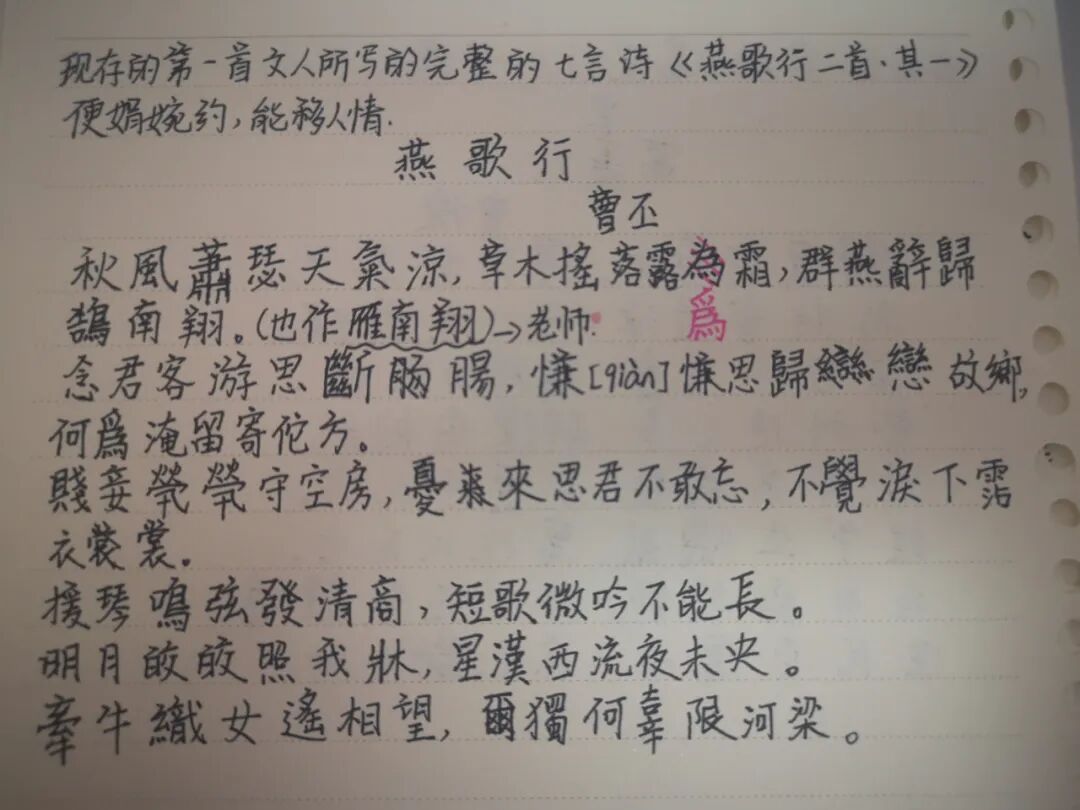 现存的第一首文人所写的完整的七言诗《燕歌行二首·其一》
便娟婉约,能移人情.
燕歌行
曹丕
秋風蕭瑟天氣涼,草木搖落露為霜,群燕辭歸
爲
鵠南翔。(也作雁南翔)→老师.
念君客游思斷肠腸,慊[qiàn]慊思歸戀戀故鄉,
何爲淹留寄佗方。
賤妾煢煢守空房,憂來思君不敢忘,不覺淚下霑
衣裳裳。
援琴鳴弦發清商,短歌微吟不能長。
明月皎皎照我牀,星漢西流夜未央。
牽牛織女遙相望,爾獨何辜限河梁。